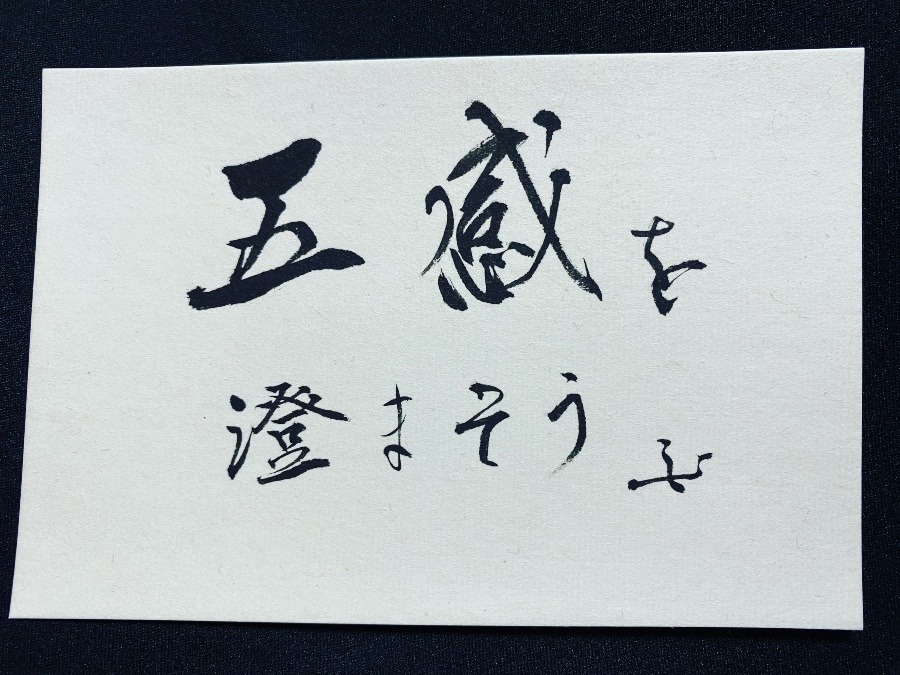 五感を
澄まそう